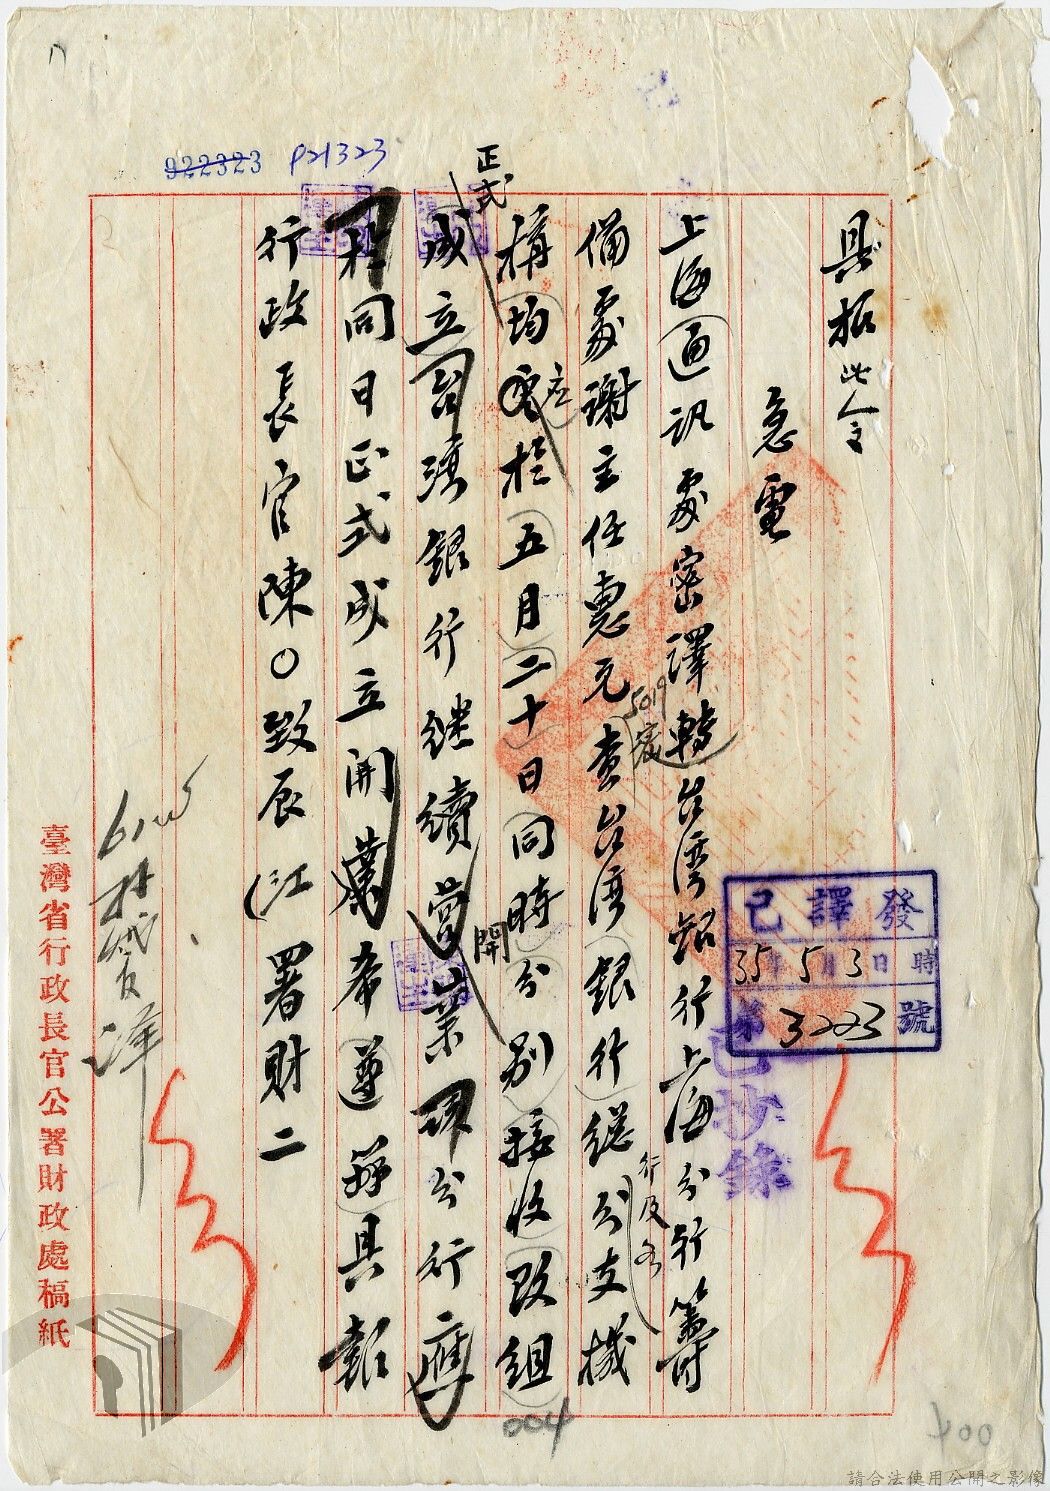 922323 P21323
具報此令
急電
上海通訊處密譯轉台灣銀行上海分行籌
備處謝主任惠元查台灣銀行總分支機
5019密
行及各
構均定於五月二十日同時分別接收改組
應
正式
成立台灣銀行继續營業 分行應
開
同日正式成立開業希遵辦具報
行政長官陳○致辰(江)署財二
發譯已
35年5月3日 時
第3223號
已抄錄
臺灣省行政長官公署財政處稿紙
004
400
請合法使用公開之影像